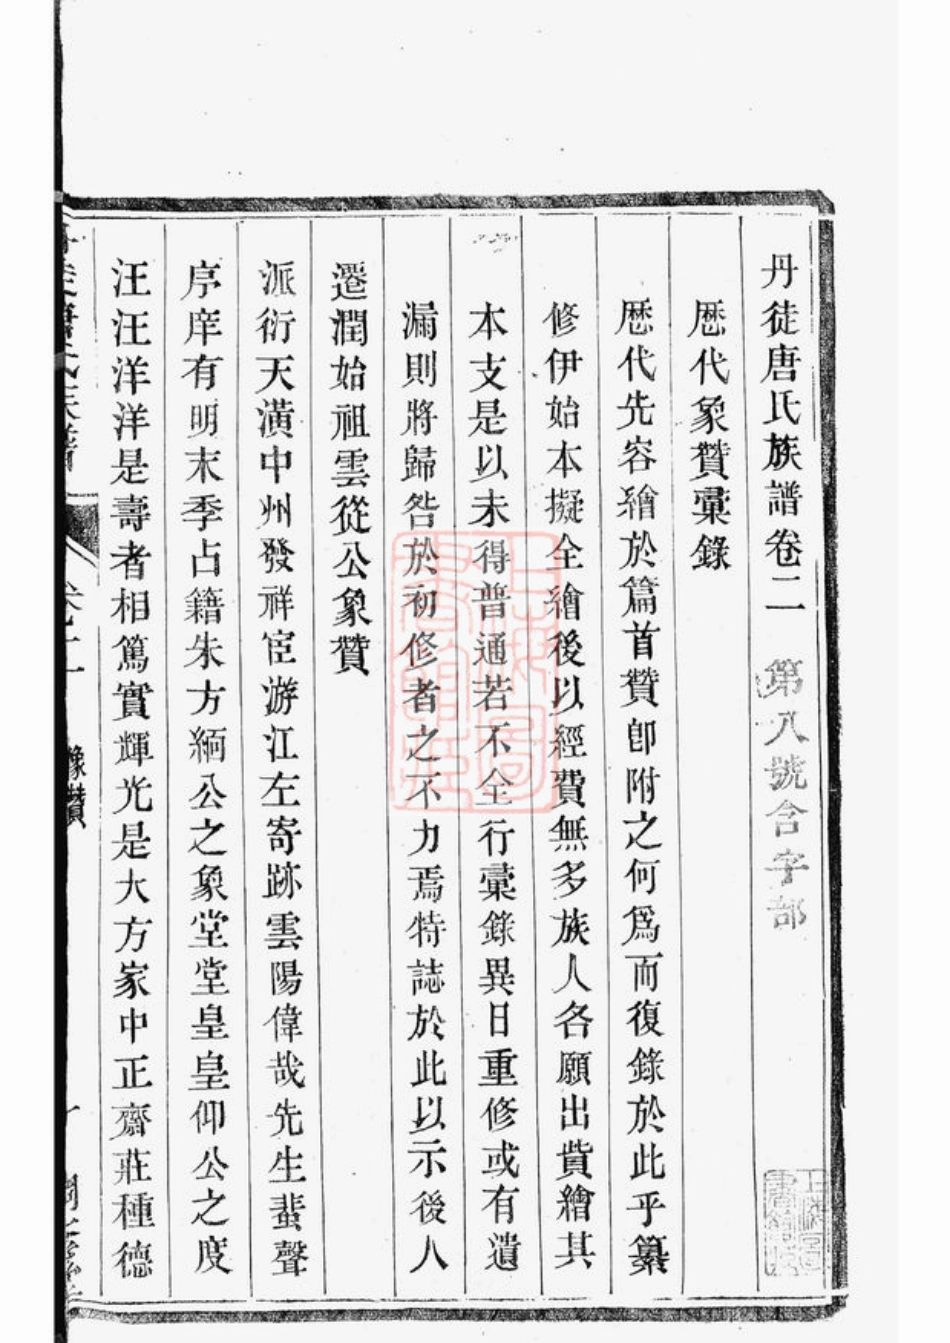 丹徒唐氏族譜卷二　第八號含字部
歷代象贊彙錄
歷代先容繪於篇首贊卽附之何爲而復錄於此乎纂
修伊始本擬全繪後以經費無多族人各願出貲繪其
本支是以未得普通若不全行彙錄異日重修或有遺
漏則將歸咎於初修者之不力焉特誌於此以示後人
遷潤始祖雲從公象贊
派衍天潢中州發祥宦游江左寄跡雲陽偉哉先生蜚聲
序庠有明末季占籍朱方緬公之象堂堂皇皇仰公之度
汪汪洋洋是壽者相篤實輝光是大方家中正齋莊種德
象贊